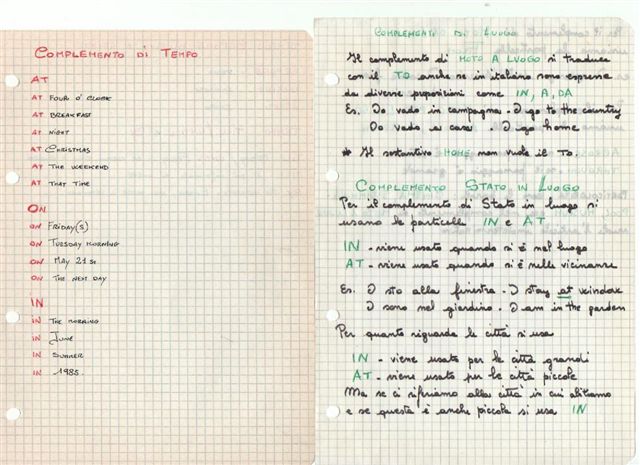 COMPLEMENTO DI TEMPO
AT
AT FOUR O' CLOCK
AT BREAKFAST
AT NIGHT
AT CHRISTMAS
AT THE WEEKEND
AT THAT TIME
ON
ON FRIDAY(S)
ON TUESDAY MORNING
ON MAY 21st
ON THE NEXT DAY
IN
IN THE MORNING
IN JUNE
IN SUMMER
IN 1985.
COMPLEMENTO DI LUOGO
Il complemento di MOTO A LUOGO si traduce
con il TO anche se in italiano sono espresse
da diverse preposizioni come IN, A, DA
Es. Io vado in campagna - I go to the country
Io vado a casa I go home
* Il sostantivo HOME non vuole il TO.
COMPLEMENTO STATO IN LUOGO
Per il complemento di Stato in luogo si
usano le particelle IN e AT
IN - viene usato quando si è nel luogo
AT - viene usato quando si è nelle vicinanze
Es. I sto alla finestra - I stay at window
I sono nel giardino - I am in the garden
Per quanto riguarda le città si usa
IN - viene usato per le città grandi
AT - viene usato per le città piccole
Ma se ci riferiamo alla città in cui abitiamo
e se questa è anche piccola si usa IN